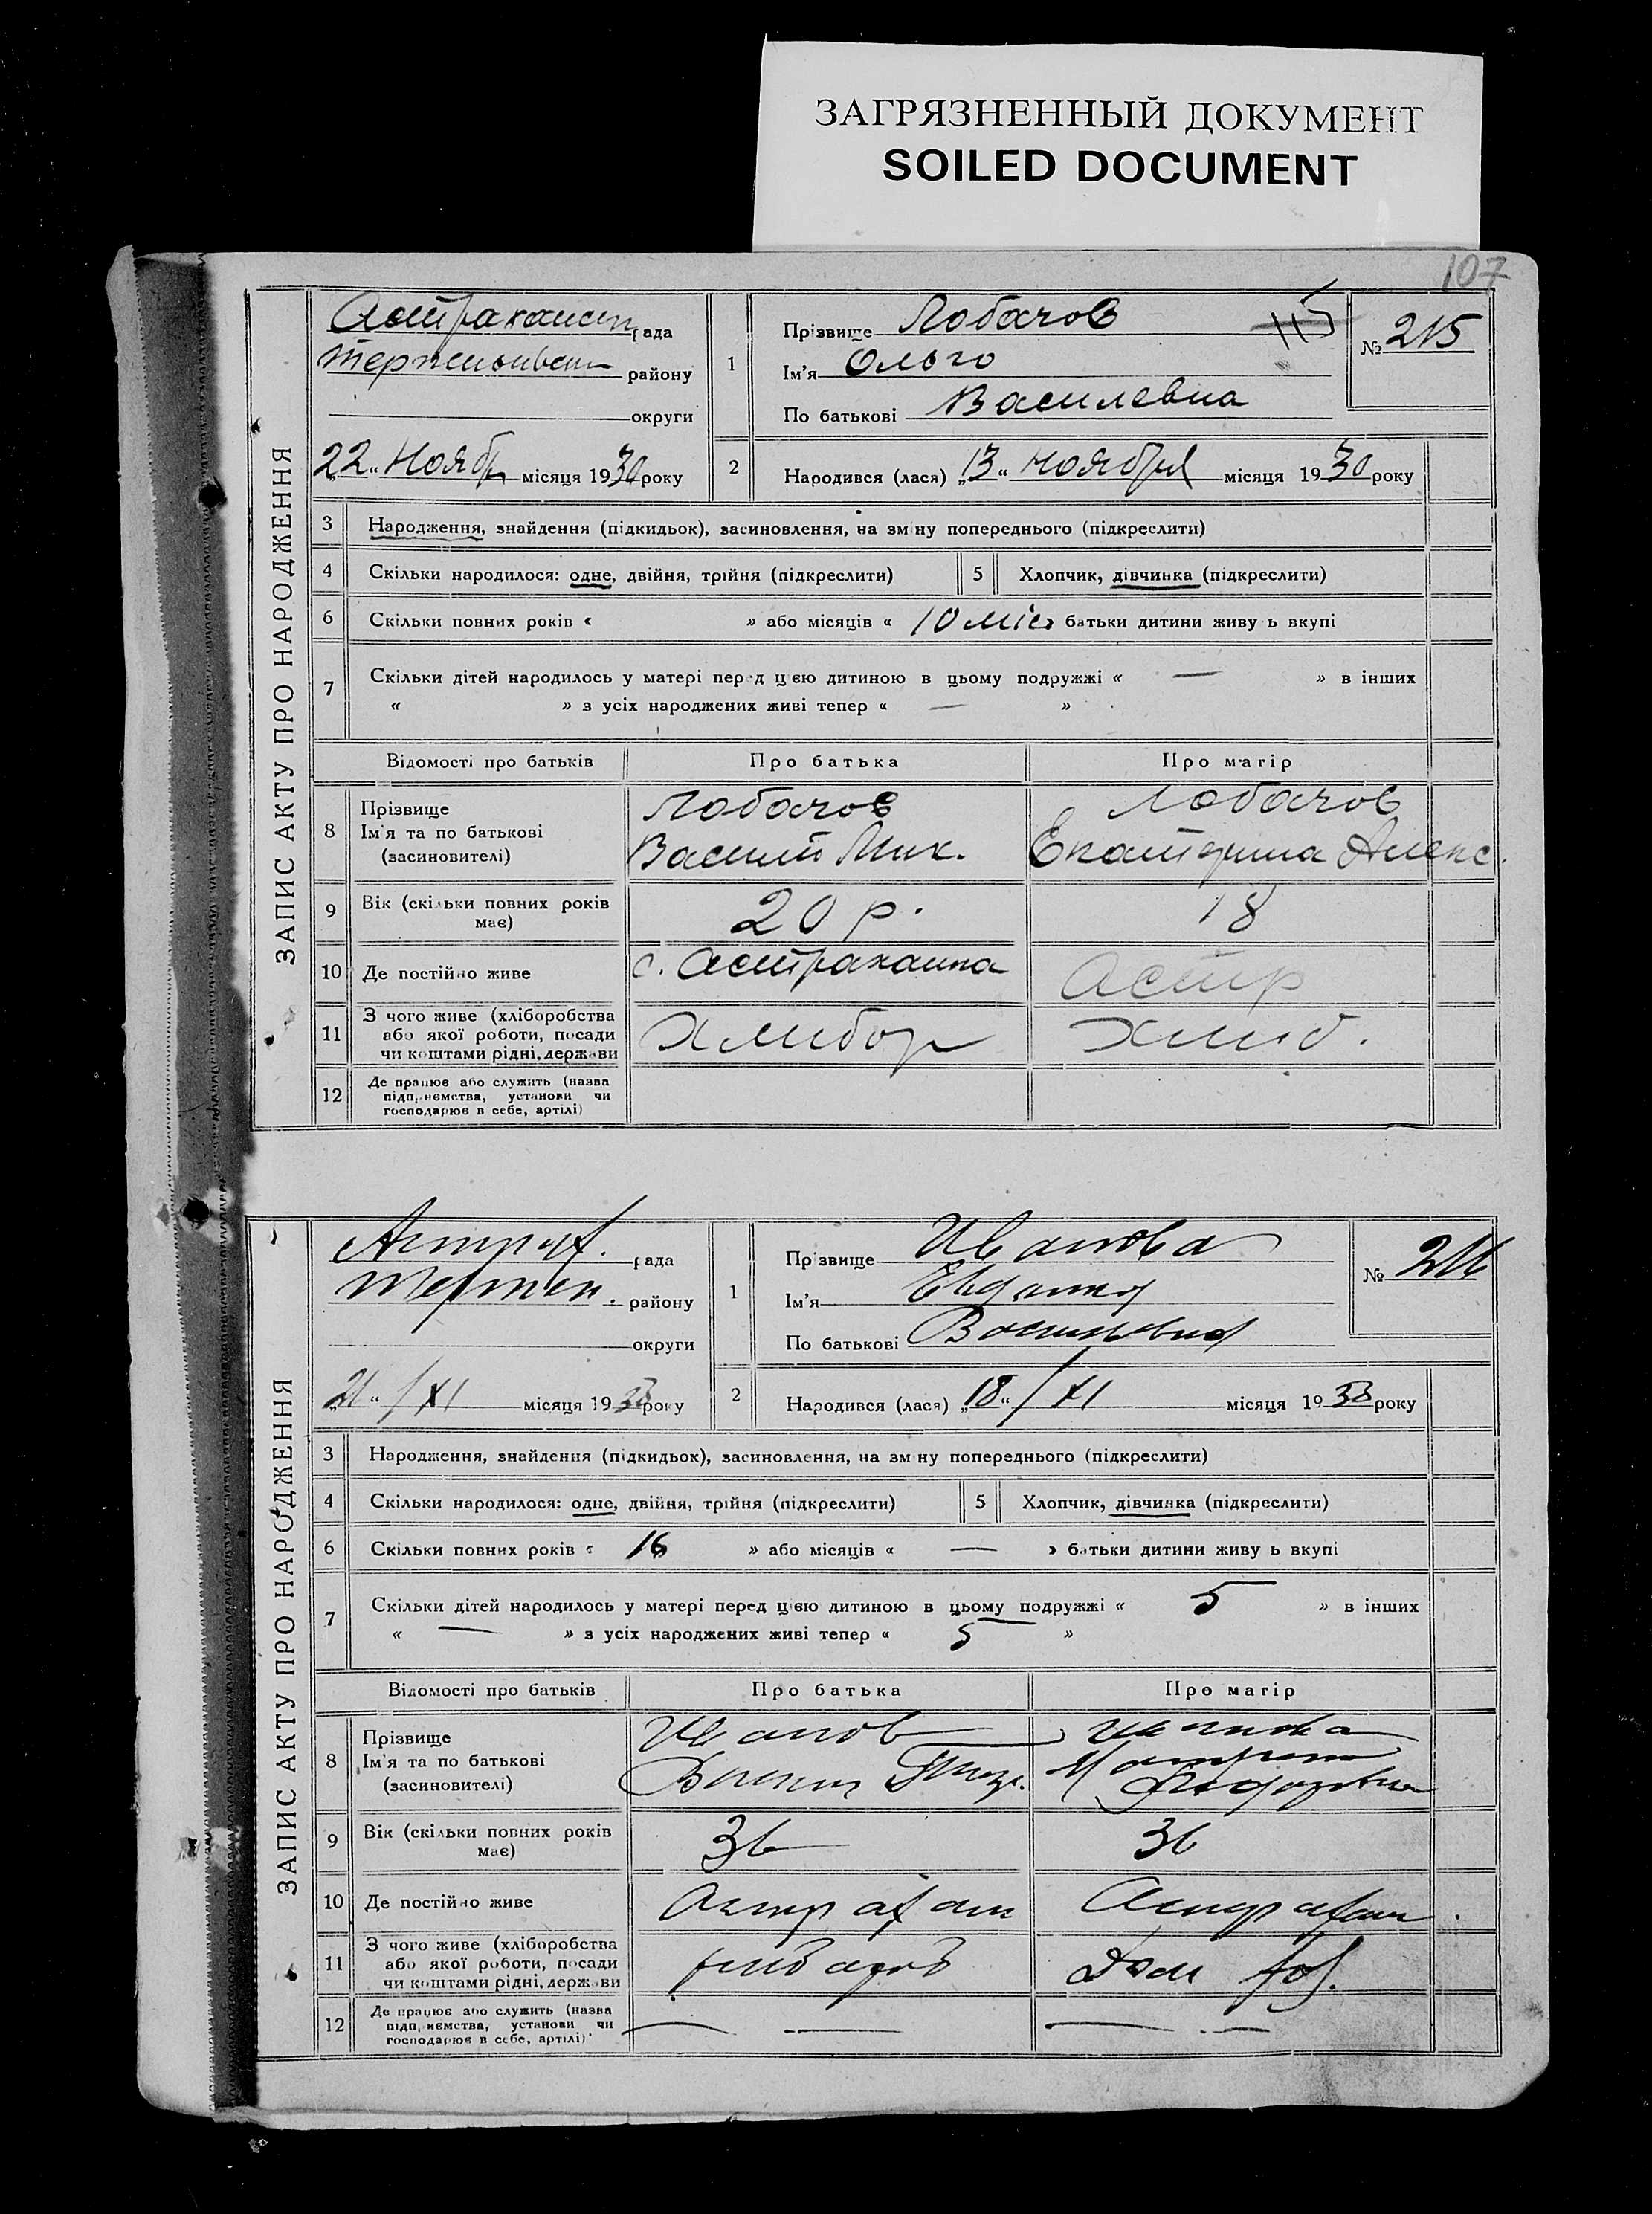 ЗАГРЯЗНЕННЫЙ ДОКУМЕНТ
SOILED DOCUMENT
107
ЗАПИС АКТУ ПРО НАРОДЖЕННЯ
Астраханськ рада
району
округи
22 „ Ноябр місяця 1930 року
1 Прізвище Лобачов 115
Ім'я Ольго
По батькові Василевна
№ 215
2 Народився (лася) „13“ ноября місяця 1930 року
3 Народження, знайдення (підкидьок), засиновлення, на зміну попереднього (підкреслити)
4 Скільки народилося: одне, двійня, трійня (підкреслити) 5 Хлопчик, дівчинка (підкреслити)
6 Скільки повних років « » або місяців « 10 міс » батьки дитини живуть вкупі
7 Скільки дітей народилось у матері перед цією дитиною в цьому подружжі « — » в інших
« » з усіх народжених живі тепер « — »
Відомості про батьків Про батька Про матір
8 Прізвище Лобачов Лобачов
Ім'я та по батькові Василий Мих. Екатерина Алекс.
(засиновителі)
9 Вік (скільки повних років має) 20 р. 18
10 Де постійно живе с. Астраханка Астр
11 З чого живе (хліборобства
або якої роботи, посади Хлибор Хлиб.
чи коштами рідні, держави
12 Де працює або служить (назва
підприємства, установи чи
господарює в себе, артілі)
ЗАПИС АКТУ ПРО НАРОДЖЕННЯ
Астрах. рада
району
округи
„21“ / XI місяця 19 року
1 Прізвище Иванова
Ім'я Евдокия
По батькові Василовна
№ 216
2 Народився (лася) „18“ / XI місяця 19 року
3 Народження, знайдення (підкидьок), засиновлення, на зміну попереднього (підкреслити)
4 Скільки народилося: одне, двійня, трійня (підкреслити) 5 Хлопчик, дівчинка (підкреслити)
6 Скільки повних років « 16 » або місяців « — » батьки дитини живуть вкупі
7 Скільки дітей народилось у матері перед цією дитиною в цьому подружжі « 5 » в інших
« — » з усіх народжених живі тепер « 5 »
Відомості про батьків Про батька Про матір
8 Прізвище Иванов Иванова
Ім'я та по батькові
(засиновителі)
9 Вік (скільки повних років має) 36 36
10 Де постійно живе Астрахан Астрахан.
11 З чого живе (хліборобства
або якої роботи, посади Дом
чи коштами рідні, держави
12 Де працює або служить (назва — — — —
підприємства, установи чи
господарює в себе, артілі)